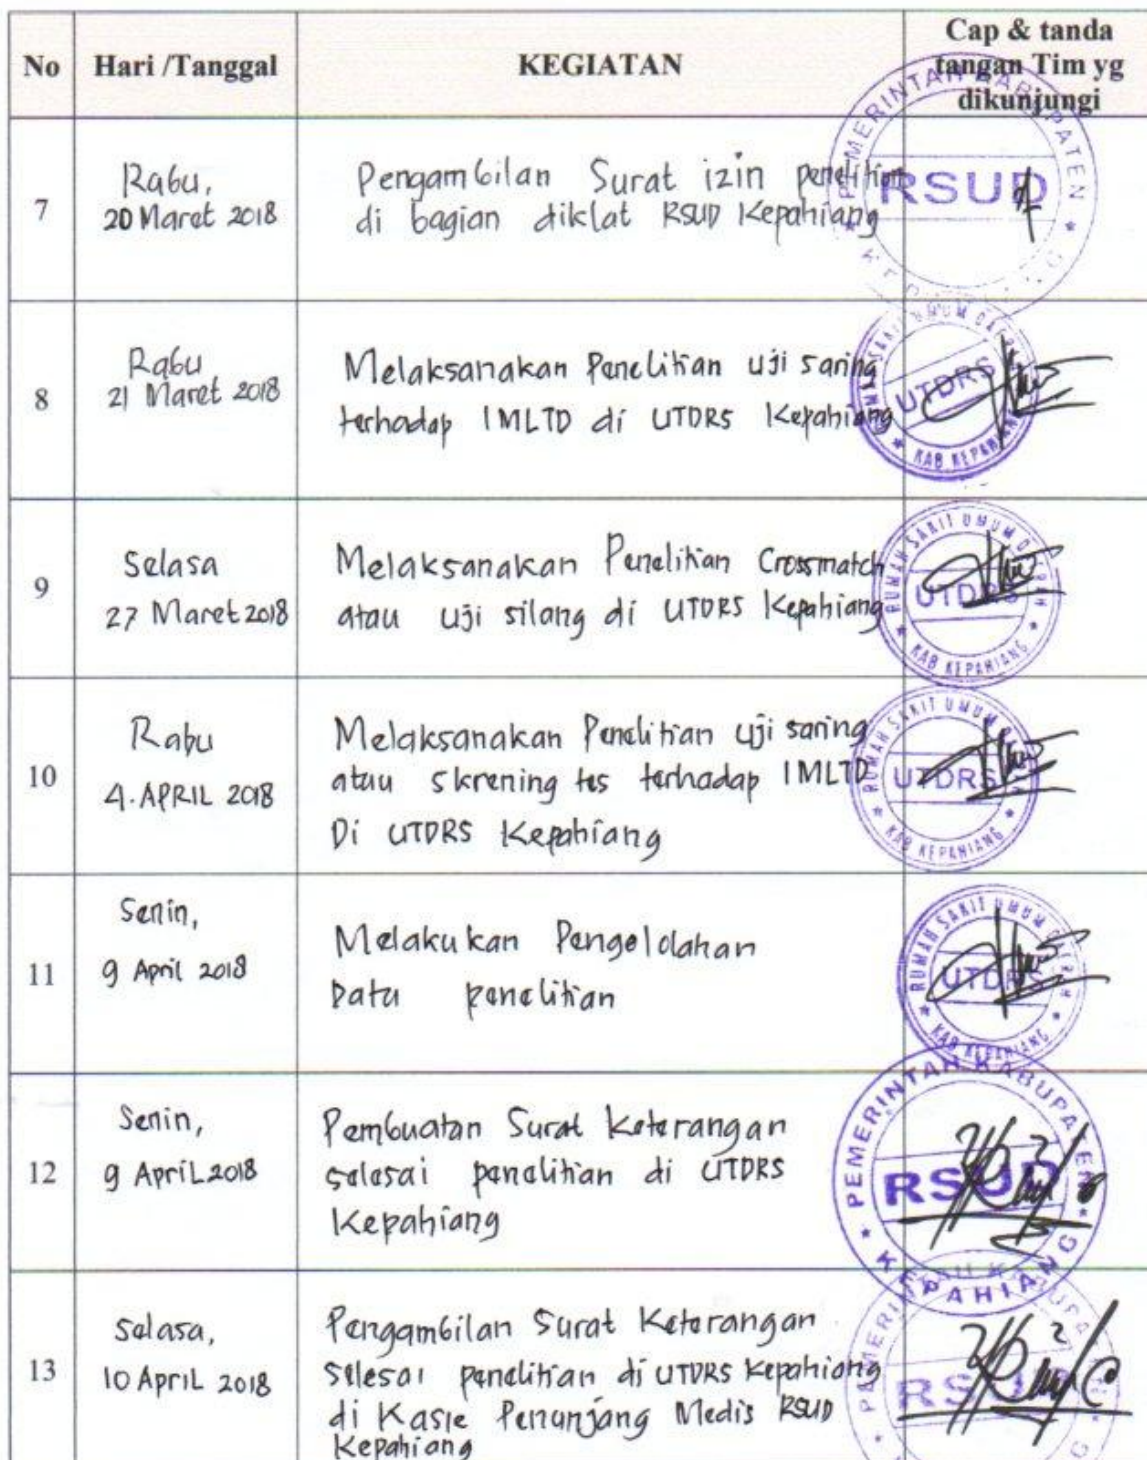 No Hari /Tanggal KEGIATAN Cap & tanda
tangan Tim yg
dikunjungi
7
Rabu,
20 Maret 2018
Pengambilan Surat izin penelitian
di bagian diklat RSUD Kepahiang
PEMERINTAH KABUPATEN
RSUD
8
Rabu
21 Maret 2018
Melaksanakan Penelitian uji saring
terhadap IMLTD di UTDRS Kepahiang
RUMAH SAKIT UMUM DAERAH
UTDRS
KAB KEPAHIANG
9
Selasa
27 Maret 2018
Melaksanakan Penelitian Crossmatch
atau uji silang di UTDRS Kepahiang
RUMAH SAKIT UMUM DAERAH
UTDRS
KAB KEPAHIANG
10
Rabu
4. APRIL 2018
Melaksanakan Penelitian uji saring
atau skrening tes terhadap IMLTD
Di UTDRS Kepahiang
RUMAH SAKIT UMUM DAERAH
UTDRS
KAB KEPAHIANG
11
Senin,
9 April 2018
Melakukan Pengelolahan
Data penelitian
RUMAH SAKIT UMUM DAERAH
UTDRS
KAB KEPAHIANG
12
Senin,
9 April 2018
Pembuatan Surat Keterangan
selesai penelitian di UTDRS
Kepahiang
PEMERINTAH KABUPATEN
RSUD
KEPAHIANG
13
Selasa,
10 April 2018
Pengambilan Surat Keterangan
selesai penelitian di UTDRS Kepahiang
di Kasie Penunjang Medis RSUD
Kepahiang
RSUD